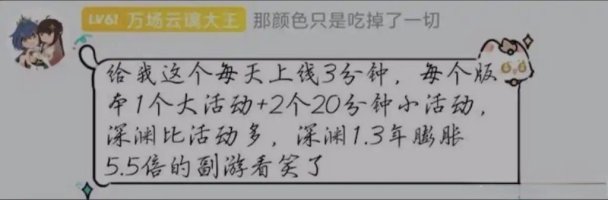 LV61 万场云谟大王 那颜色只是吃掉了一切
给我这个每天上线3分钟,每个版
本1个大活动+2个20分钟小活动,
深渊比活动多,深渊1.3年膨胀
5.5倍的副游看笑了